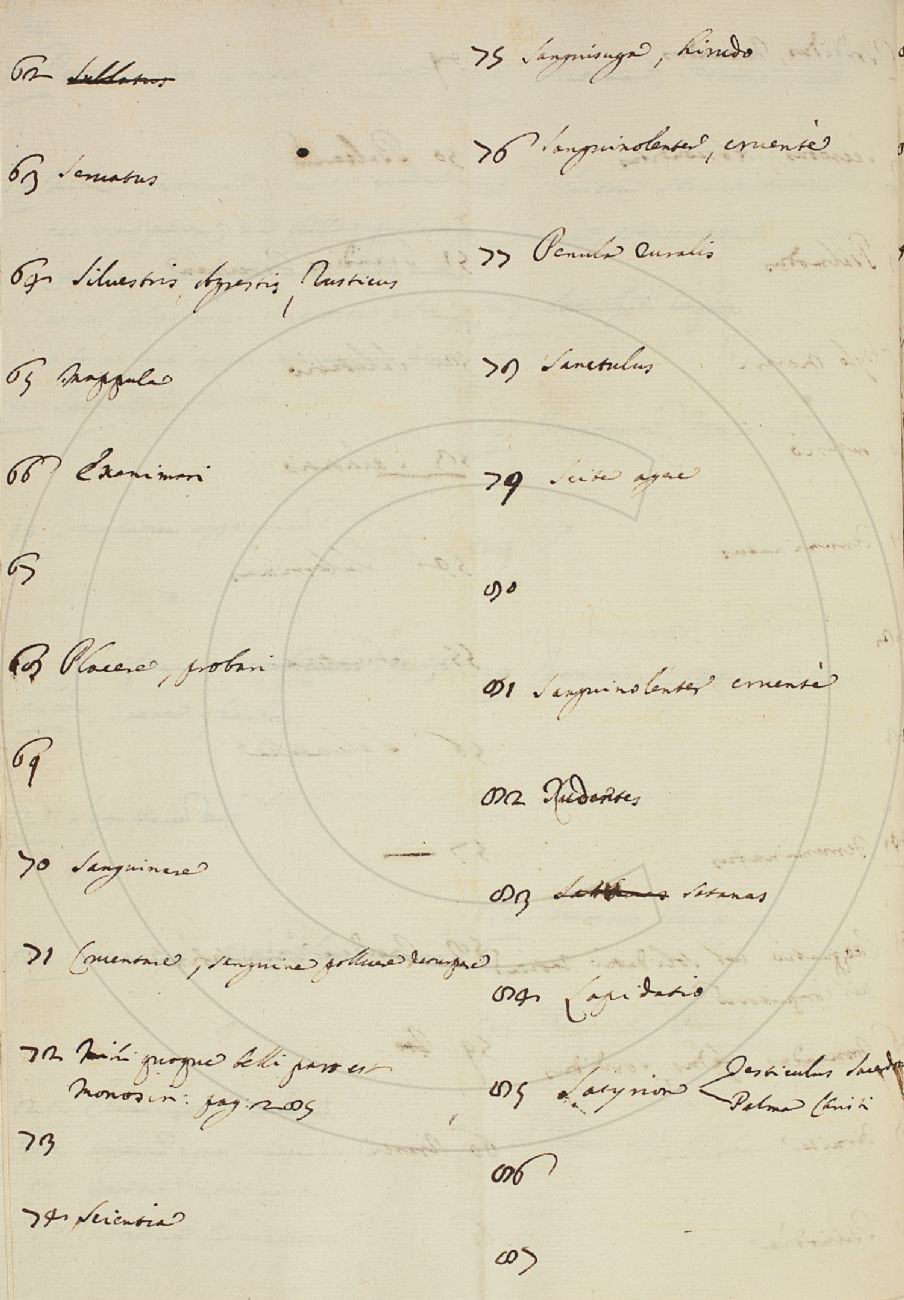 62 Sullatus
63 Seruatus
64 Siluestris, Agrestis, Rusticus
65 Mappula
66 Exanimari
67
68 Placere, probari
69
70 Sanguinare
71 Cruentare, sanguine polluere
72 Mihi quoque belli pars est
Monosin: pag. 285
73
74 Scientia
75 Sanguisuga, hirudo
76 Sanguinolenter, cruentè
77 Penula ruralis
78 Sanctulus
79 Scite agere
80
81 Sanguinolenter cruentè
82 Rudentes
83 Satanas
84 Lapidatio
85 Satyrion Testiculus
Palma Christi
86
87